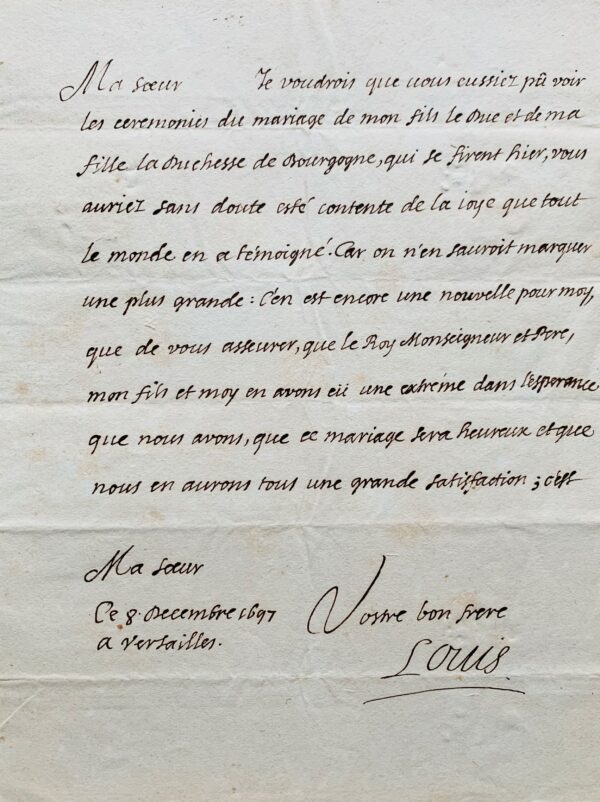 Ma sœur Je voudrois que vous eussiez pû voir
les ceremonies du mariage de mon fils le Duc et de ma
fille la Duchesse de Bourgogne, qui se firent hier, vous
auriez sans doute esté contente de la ioye que tout
le monde en a témoigné. Car on n'en sauroit marquer
une plus grande : C'en est encore une nouvelle pour moy,
que de vous asseurer, que le Roy Monseigneur et Pere,
mon fils et moy en avons eü une extréme dans l'esperance
que nous avons, que ce mariage sera heureux et que
nous en aurons tous une grande satisfaction ; c'est
Ma sœur
Ce 8. Decembre 1697
a Versailles.
Vostre bon frere
Louis.